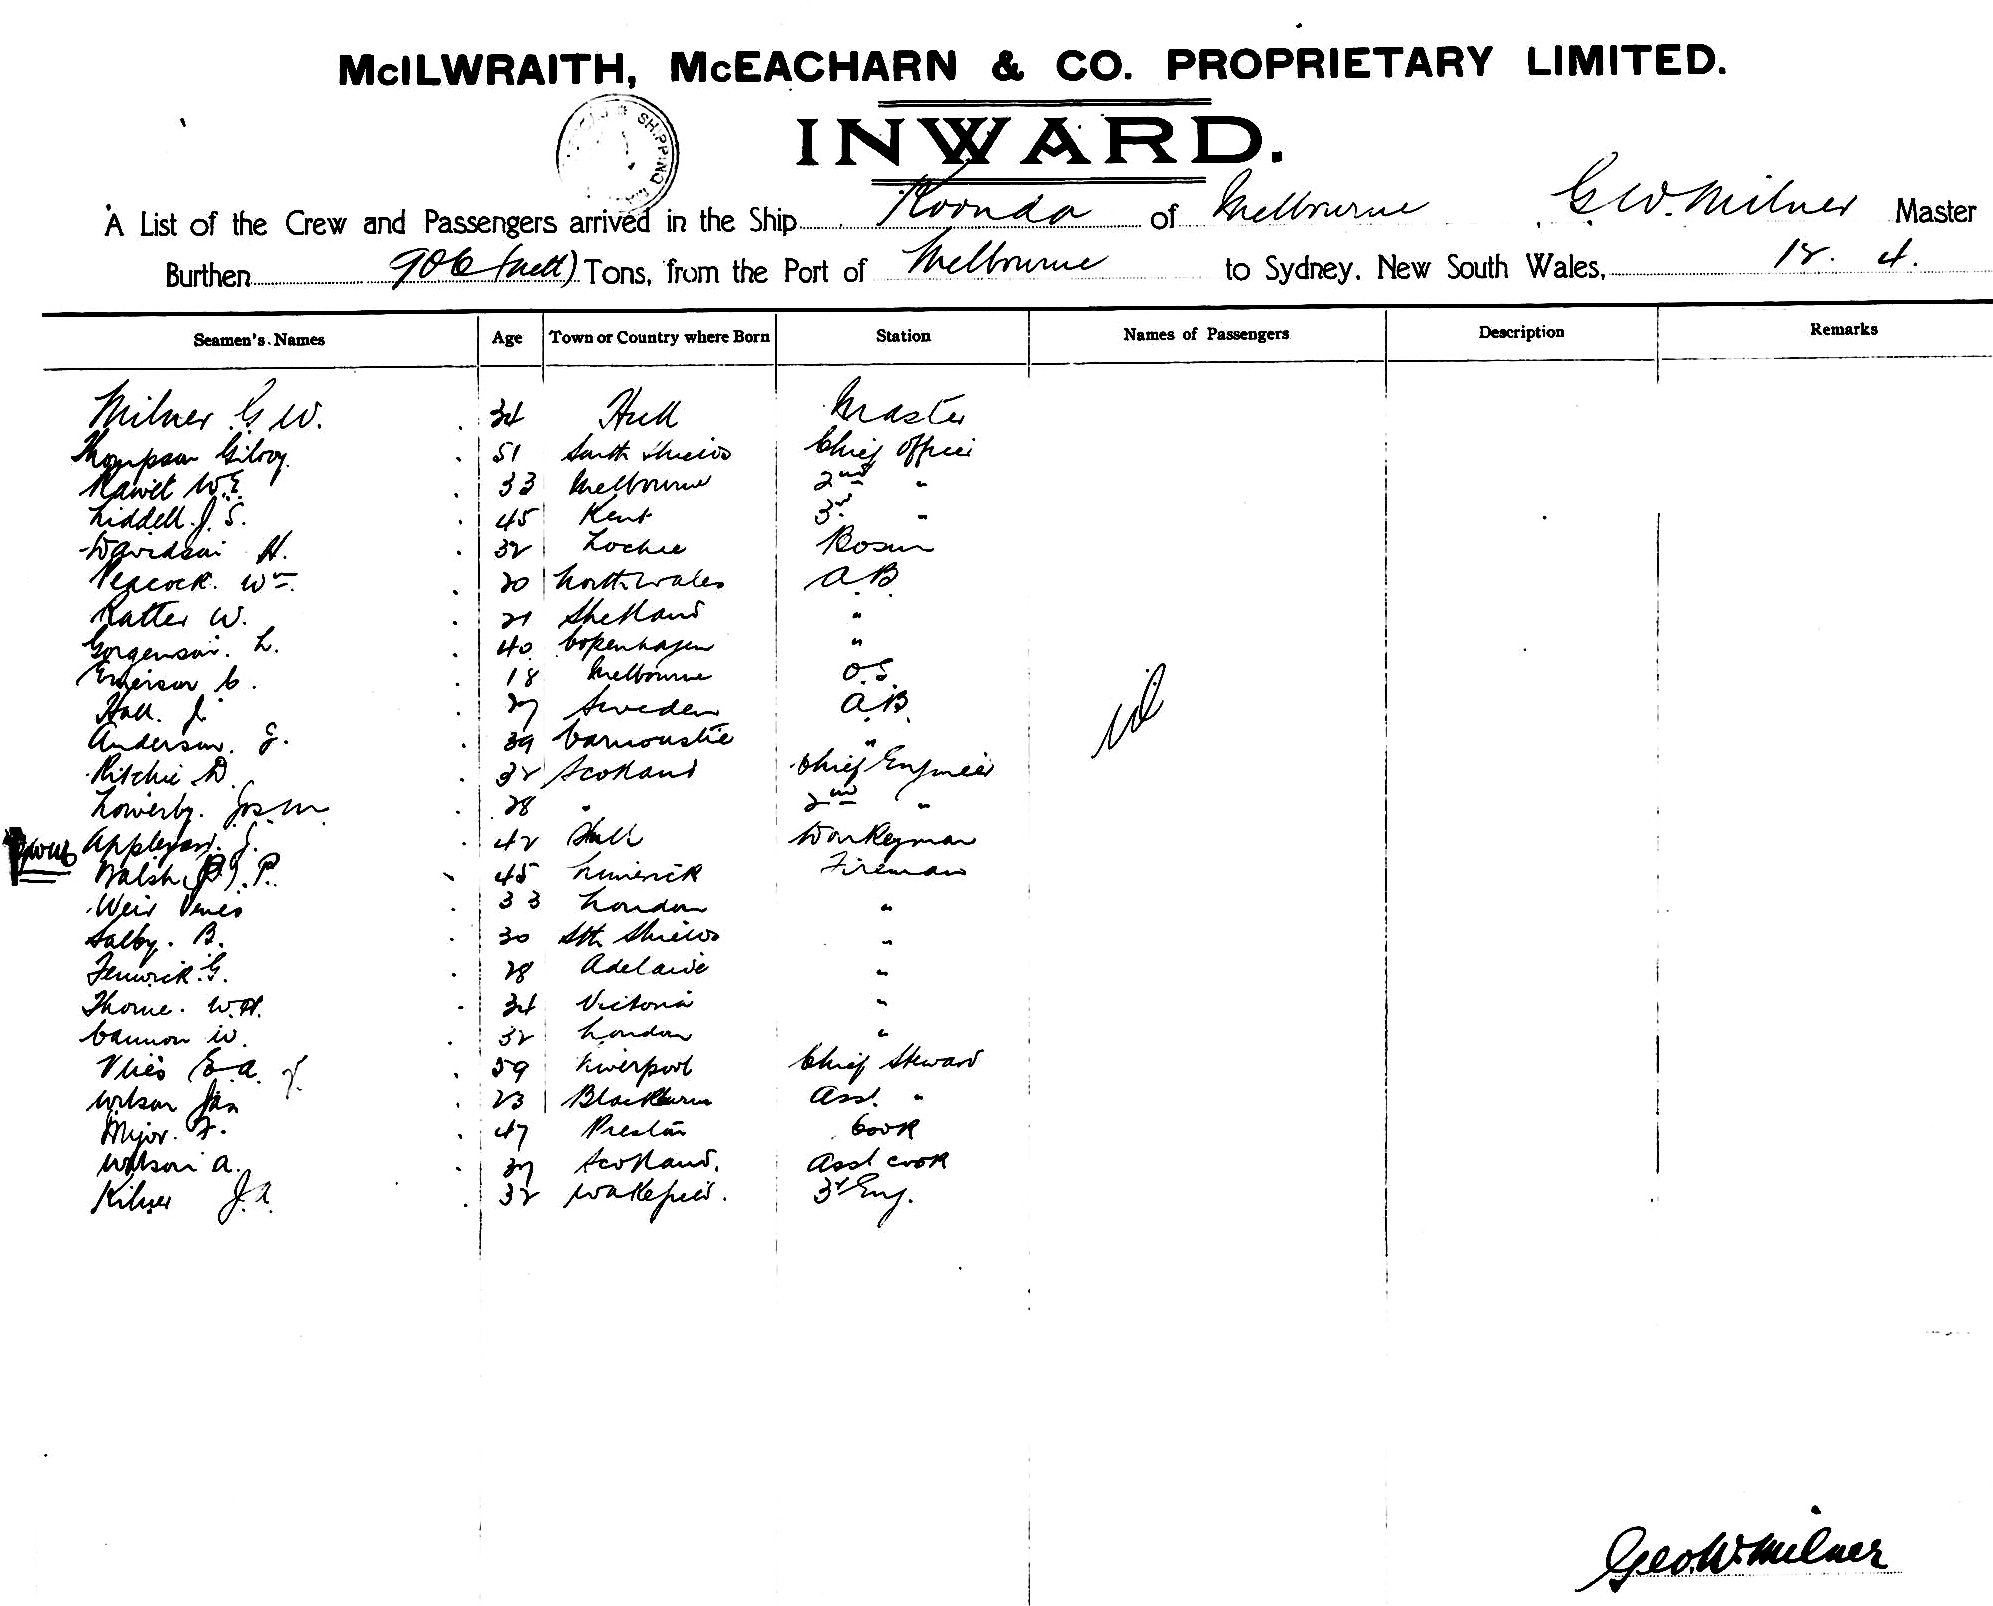 McILWRAITH, McEACHARN & CO. PROPRIETARY LIMITED.
SHIPPING
INWARD.
A List of the Crew and Passengers arrived in the Ship Koonda of Melbourne G. W. Milner Master
Burthen 906 (nett) Tons, from the Port of Melbourne to Sydney. New South Wales, 12. 4.
Seamen's Names Age Town or Country where Born Station Names of Passengers Description Remarks
Milner G W. 34 Hull Master
Thompson Gilroy. 51 South Shields Chief Officer
W.E. 33 Melbourne 2nd "
Liddell. J. S. 45 Kent 3rd "
Davidson H. 32 Lochee Bosun
Peacock. Wm. 20 North Wales A.B.
Ratter W. 21 Shetland "
Gorgenson. L. 40 Copenhagen "
Emerson C. 18 Melbourne O.S.
Hall. J. 27 Sweden A.B.
Anderson. G. 39 Carnoustie "
Ritchie D. 32 Scotland Chief Engineer
Lowerby. Jos. M. 28 " 2nd "
Appleyard. S. 42 Hull Donkeyman
Walsh J. P. 45 Limerick Fireman
Weir 33 London "
Salby. B. 30 Sth Shields "
Fenwick. G. 28 Adelaide "
Thorne. W.H. 34 Victoria "
Cannon W. 32 London "
Vlies E. A. 59 Liverpool Chief Steward
Wilson Jas 23 Blackburn Asst. "
Major. F. 47 Preston Cook
Watson A. 37 Scotland. Asst cook
Kilner J. A. 32 Wakefield. 3rd Eng.
nil
Geo. W. Milner